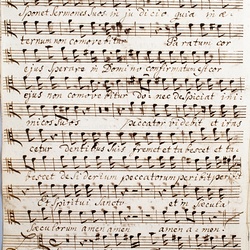 sponet Sermones Suos in judicio quia in æ
ternum non comovebitur Paratum cor
ejus sperare in Domino confirmatum est cor
ejus non comovebitur donec despiciat ini
micos Suos peccator videbit et iras
cetur dentibus suis fremet et tabescet et ta
bescet desiderium peccatorum peribit peribit
et Spiritui Sancto et in sæcula
Sæculorum amen amen amen amen